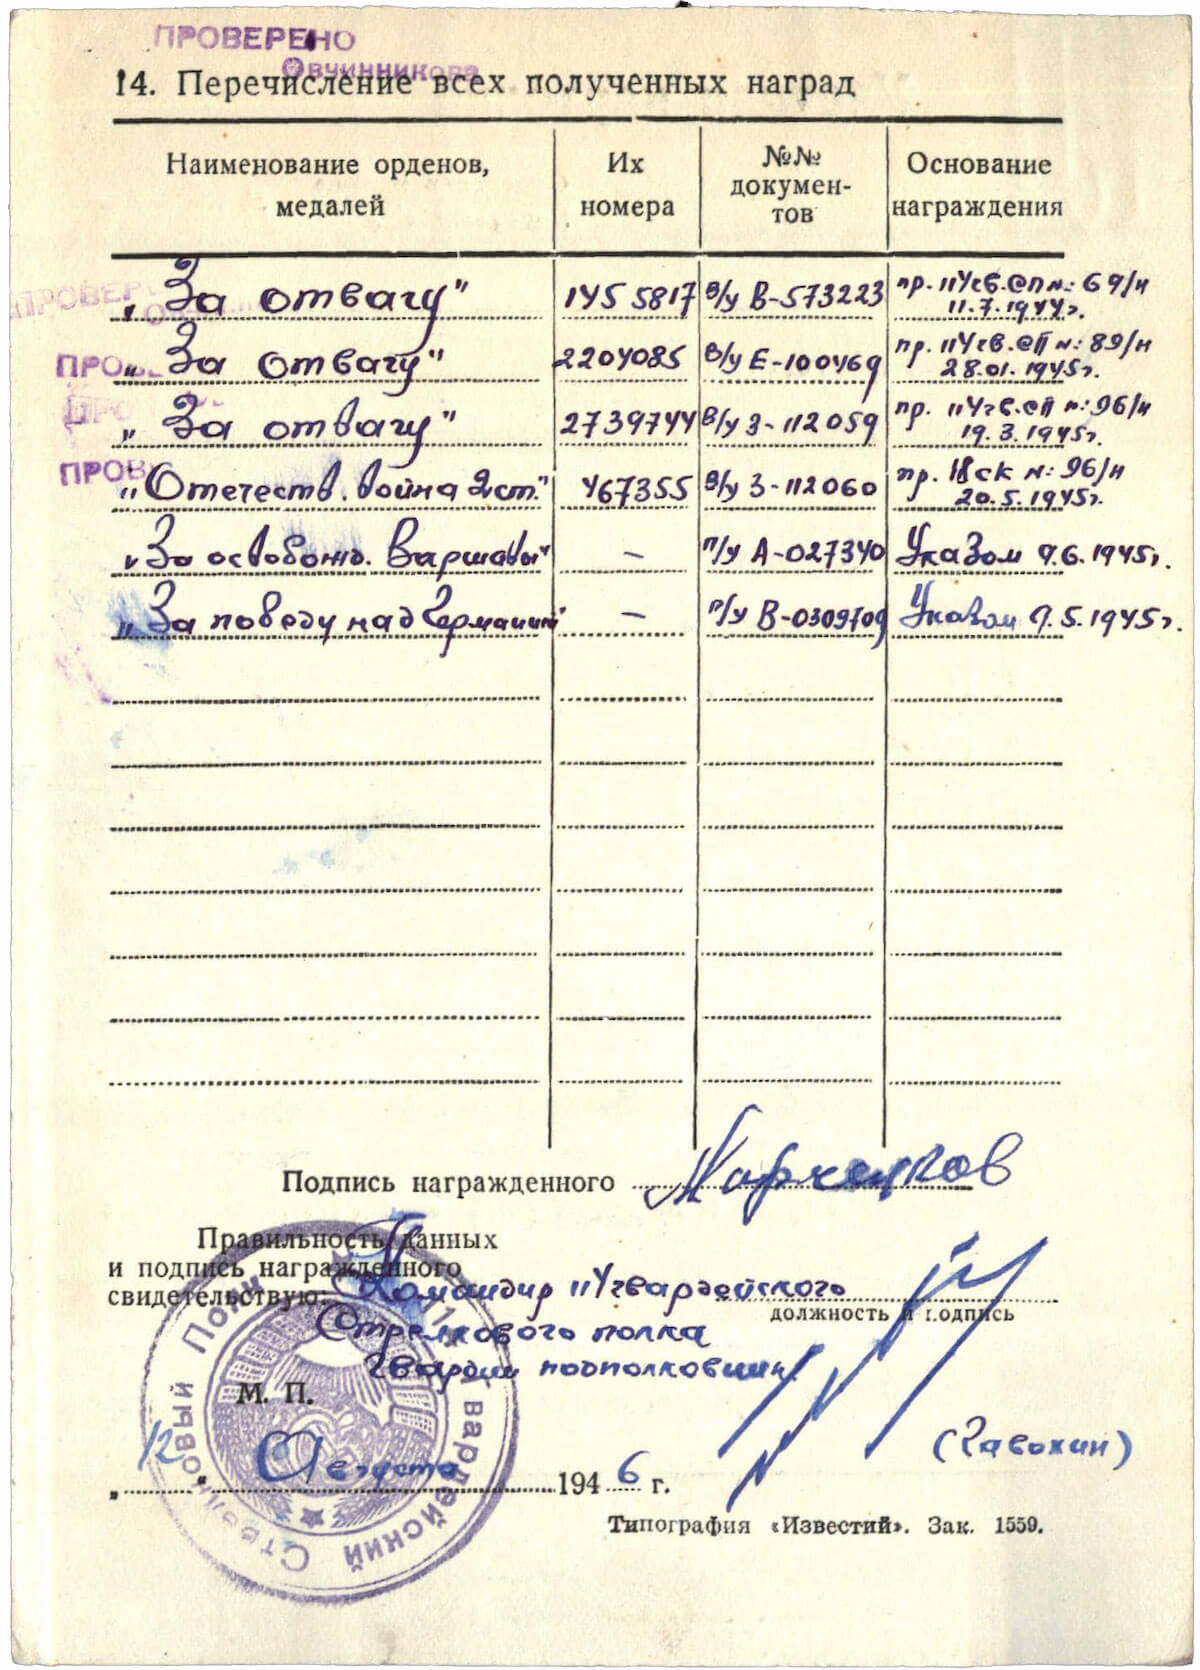 ПРОВЕРЕНО
Овчинникова
14. Перечисление всех полученных наград
Наименование орденов, медалей
Их номера
№№ докумен-тов
Основание награждения
„За отвагу" 1455817 в/у В-573223 пр. 114гв.СП №: 69/н 11.7.1944г.
„За отвагу" 2204085 в/у Е-100469 пр. 114гв.сп №: 89/н 28.01.1945г.
„За отвагу" 2739744 в/у З-112059 пр. 114гв.сп №: 96/н 19.3.1945г.
„Отечеств. война 2ст." 467355 в/у З-112060 пр. 18ск №: 96/н 20.5.1945г.
„За освобожд. Варшавы" — п/у А-027340 Указом 9.6.1945г.
„За победу над Германией" — п/у В-0309709 Указом 9.5.1945г.
ПРОВЕР
ПРОВЕ
ПРО
ПРОВ
Подпись награжденного
Правильность данных
и подпись награжденного
свидетельствую: Командир 114гвардейского
должность и подпись
Стрелкового полка
гвардии подполковник
М. П.
(Гавохин)
„12" Августа 1946 г.
Стрелковый Полк 114 Гвардейский
Типография «Известий». Зак. 1559.